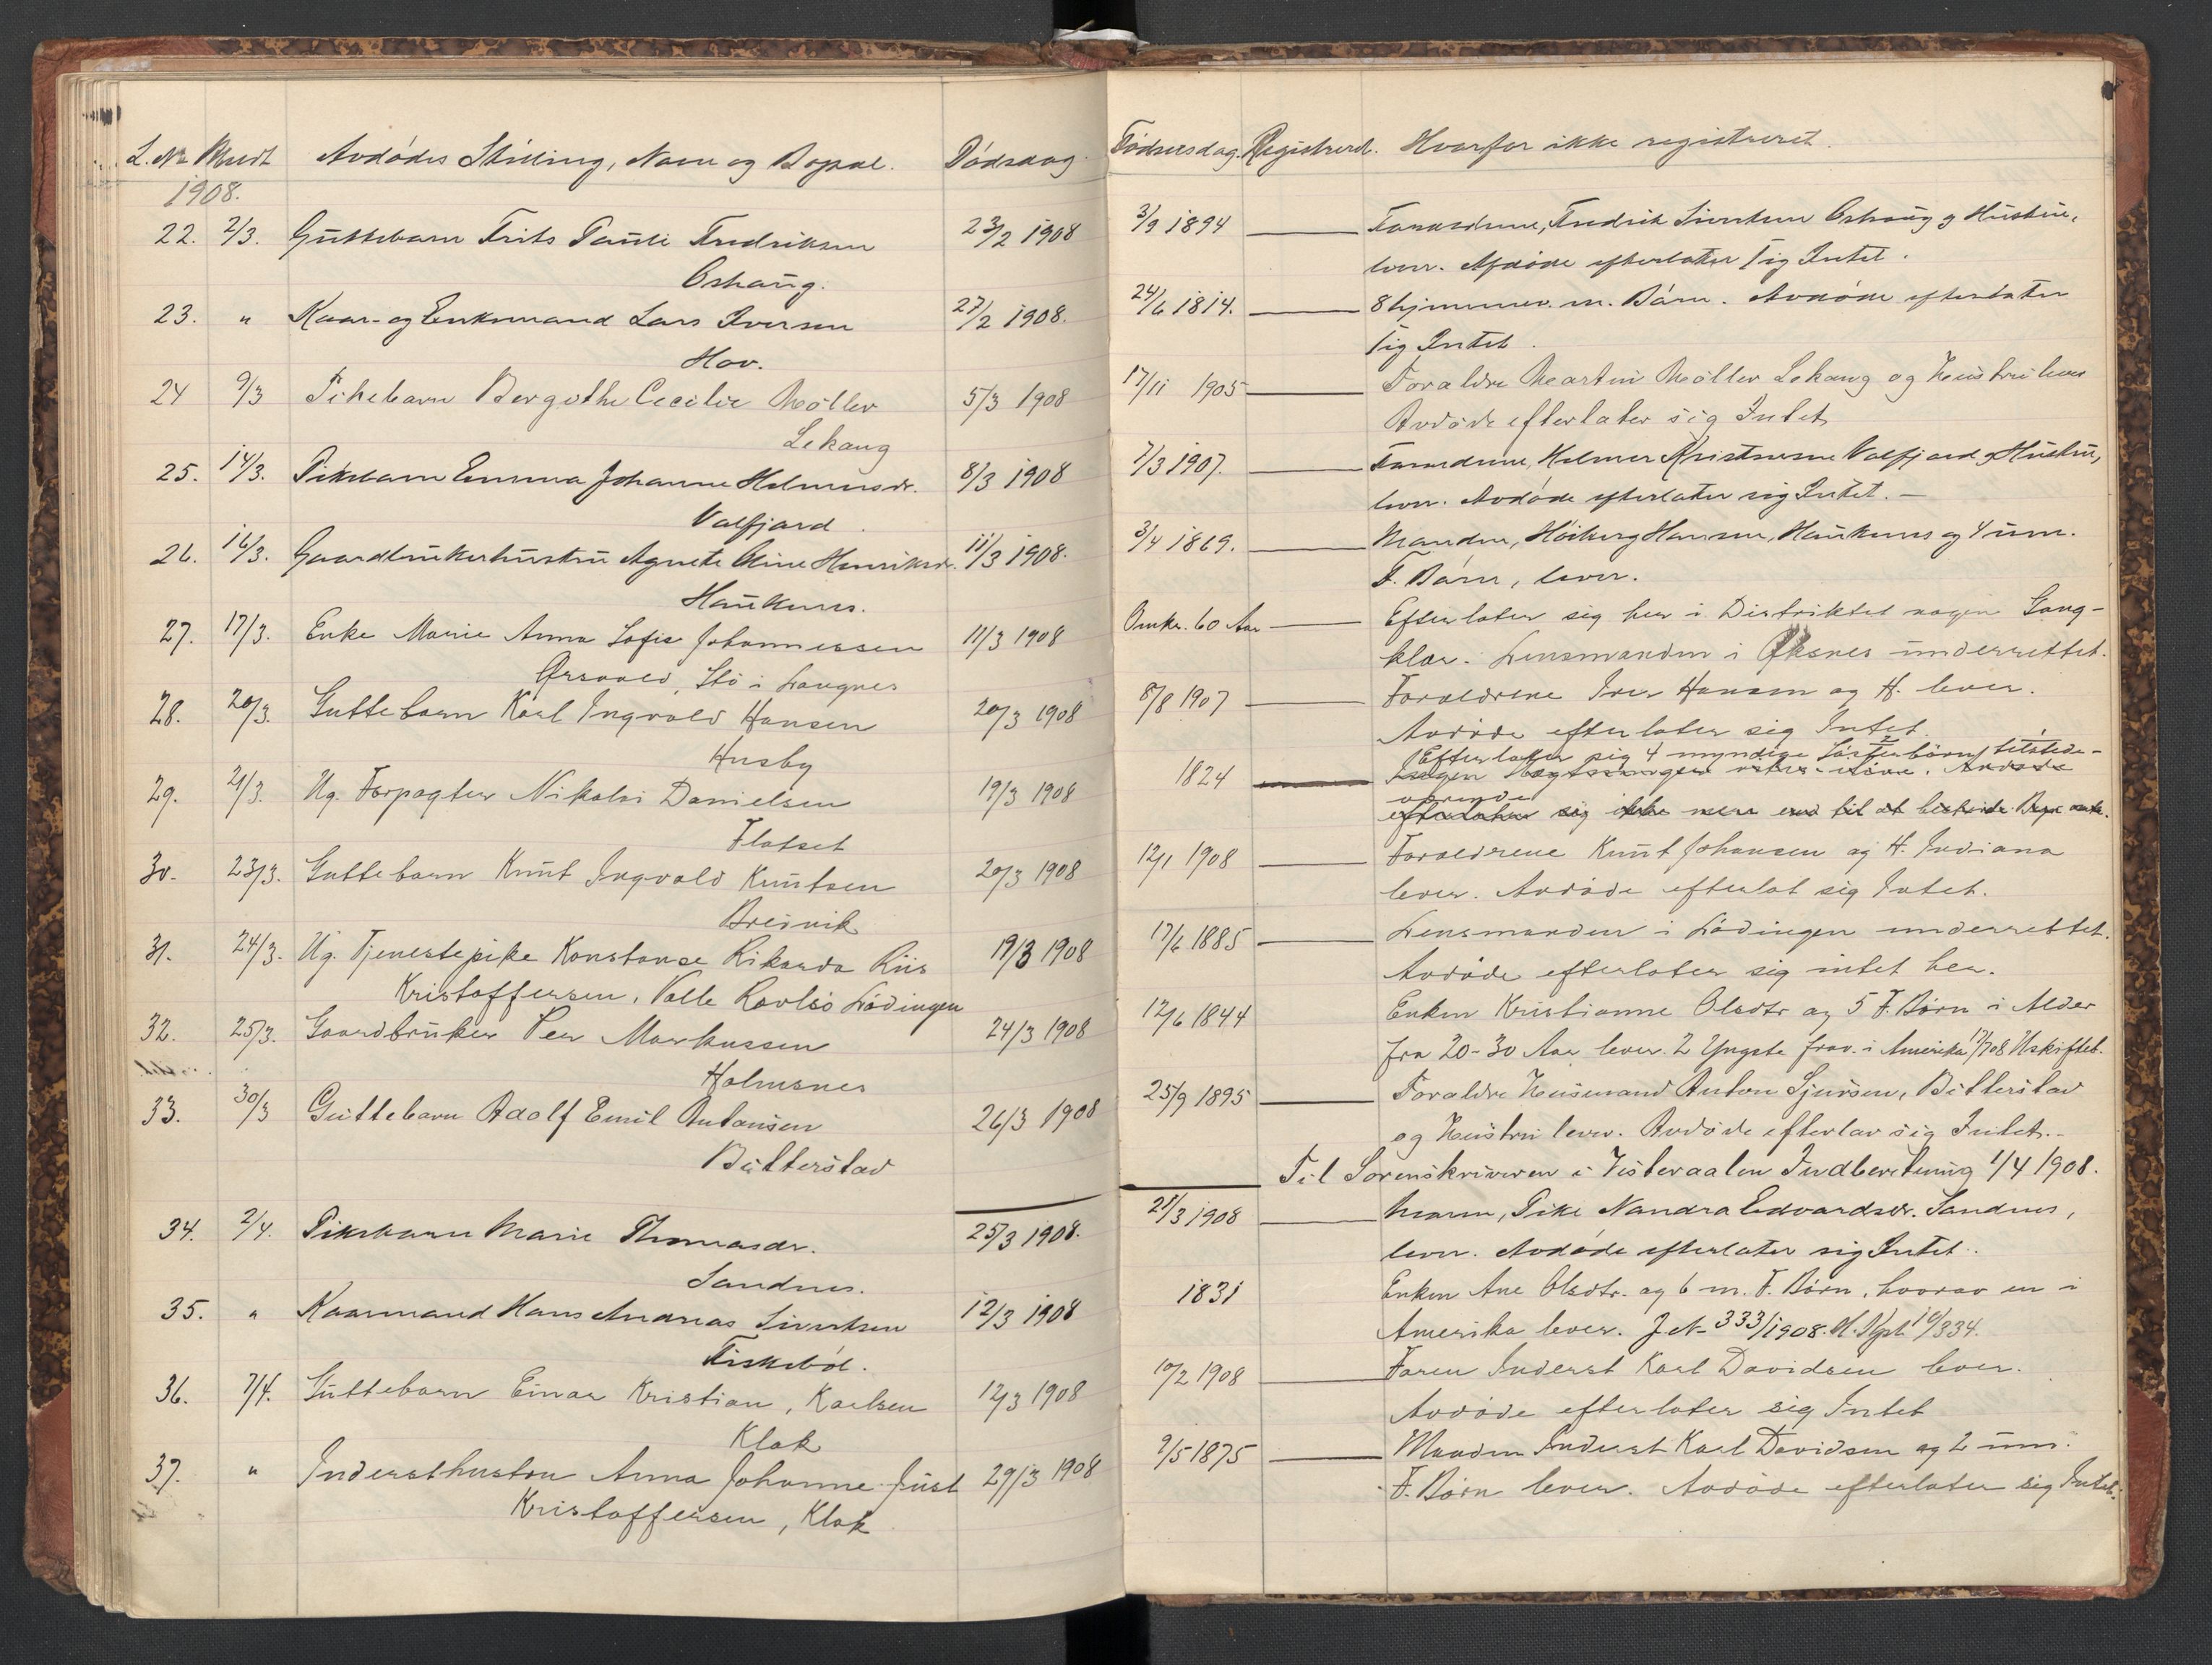 L. No Meldt Avdødes Stilling, Navn og Bopæl. Dødsdag.
1908.
22. 2/3. Guttebarn Frits Pauli Fredriksen 23/2 1908
Oshaug.
23. " Kaar- og Enkemand Lars Iversen 27/2 1908.
Hov.
24 9/3 Pikebarn Bergithe Cecilie Møller 5/3 1908
Lekang
25. 14/3. Pikebarn Emma Johanne Helmersdr. 8/3 1908
Valfjord.
26. 16/3. Gaardbrukerhustru Agnete Oline Henriksdr. 11/3 1908.
Haukenes.
27. 17/3. Enke Marie Anna Sofie Johannessen 11/3 1908
Ørsvold, Stø i Langnes
28. 20/3. Guttebarn Karl Ingvald Hansen 20/3 1908
Husby
29. 21/3. Ug. Forpagter Nikolai Danielsen 19/3 1908
Flatset
30. 23/3. Guttebarn Knut Ingvald Knutsen 20/3 1908
Breivik
31. 24/3. Ug. Tjenestepike Konstanse Rikarda Riis 19/3 1908
Kristoffersen, Valle Lødingen
32. 25/3. Gaardbruker Peer Markussen 24/3 1908
Holmsnes
33. 30/3 Guttebarn Adolf Emil Antonsen 26/3 1908
Bitterstad
34. 2/4. Pikebarn Marie Thomasdr. 25/3 1908.
Sandnes.
35. " Kaarmand Hans Andreas Sivertsen 12/3 1908
Fiskebøl.
36. 7/4. Guttebarn Einar Kristian, Karlsen 12/3 1908
Klak
37. " Indersthustru Anna Johanne Just 29/3 1908
Kristoffersen, Klak
Fødselsdag. Registrert. Hvorfor ikke registreret.
3/9 1894 Forældrene, Fredrik Sivertsen Oshaug og Hustru,
lever. Afdøde efterlater sig Intet.
24/6 1814. 8 hjemmev. m. Børn. Avdøde efterlater
sig Intet.
17/11 1905 Foraldre Martin Møller Lekang og Hustru lever
Avdøde efterlater sig Intet
7/3 1907. Forældrene, Helmer Kristensen Valfjord og Hustru,
lever. Avdøde efterlater sig Intet. —
3/4 1869. Manden, Høiberg Hansen, Haukenes og 4 um.
F. Børn, lever.
Omkr. 60 Aar Efterlater sig her i Distriktet nogen Gang-
klær. Lensmanden i Øksnes underrettet.
8/8 1907 Foraldrene Iver Hansen og H. lever.
Avdøde efterlater sig Intet.
Efterlater sig 4 myndige Søsterbørn, tilstede-
1824 Ingen Avdøde
værende
efterlater sig ikke mere end til at bestride
12/1 1908 Foraldrene Knut Johansen og H. Indiana
lever. Avdøde efterlat sig Intet.
17/6 1885 Lensmanden i Lødingen underrettet.
Avdøde efterlater sig intet her.
12/6 1844 Enken Kristianne Olsdtr og 5 F. Børn i Alder
fra 20-30 Aar lever. 2 Yngste frav. i Amerika Uskifteb.
25/9 1895 Foraldre Husmand Anton Sjursen, Bitterstad
og Hustru lever. Avdøde efterlar sig Intet. -
Til Sorenskriveren i Vesteraalen Indberetning 1/4 1908.
21/3 1908 Moren, Pike Nandra Edvardsdr. Sandnes,
lever. Avdøde efterlater sig Intet.
1831 Enken Ane Olsdtr. og 6 m. F. Børn, hvorav en i
Amerika lever. J. No 333/1908.
10/2 1908 Faren Inderst Karl Davidsen lever.
Avdøde efterlater sig Intet
9/5 1875 Manden Inderst Karl Davidsen og 2 um.
F. Børn lever. Avdøde efterlater sig Intet.